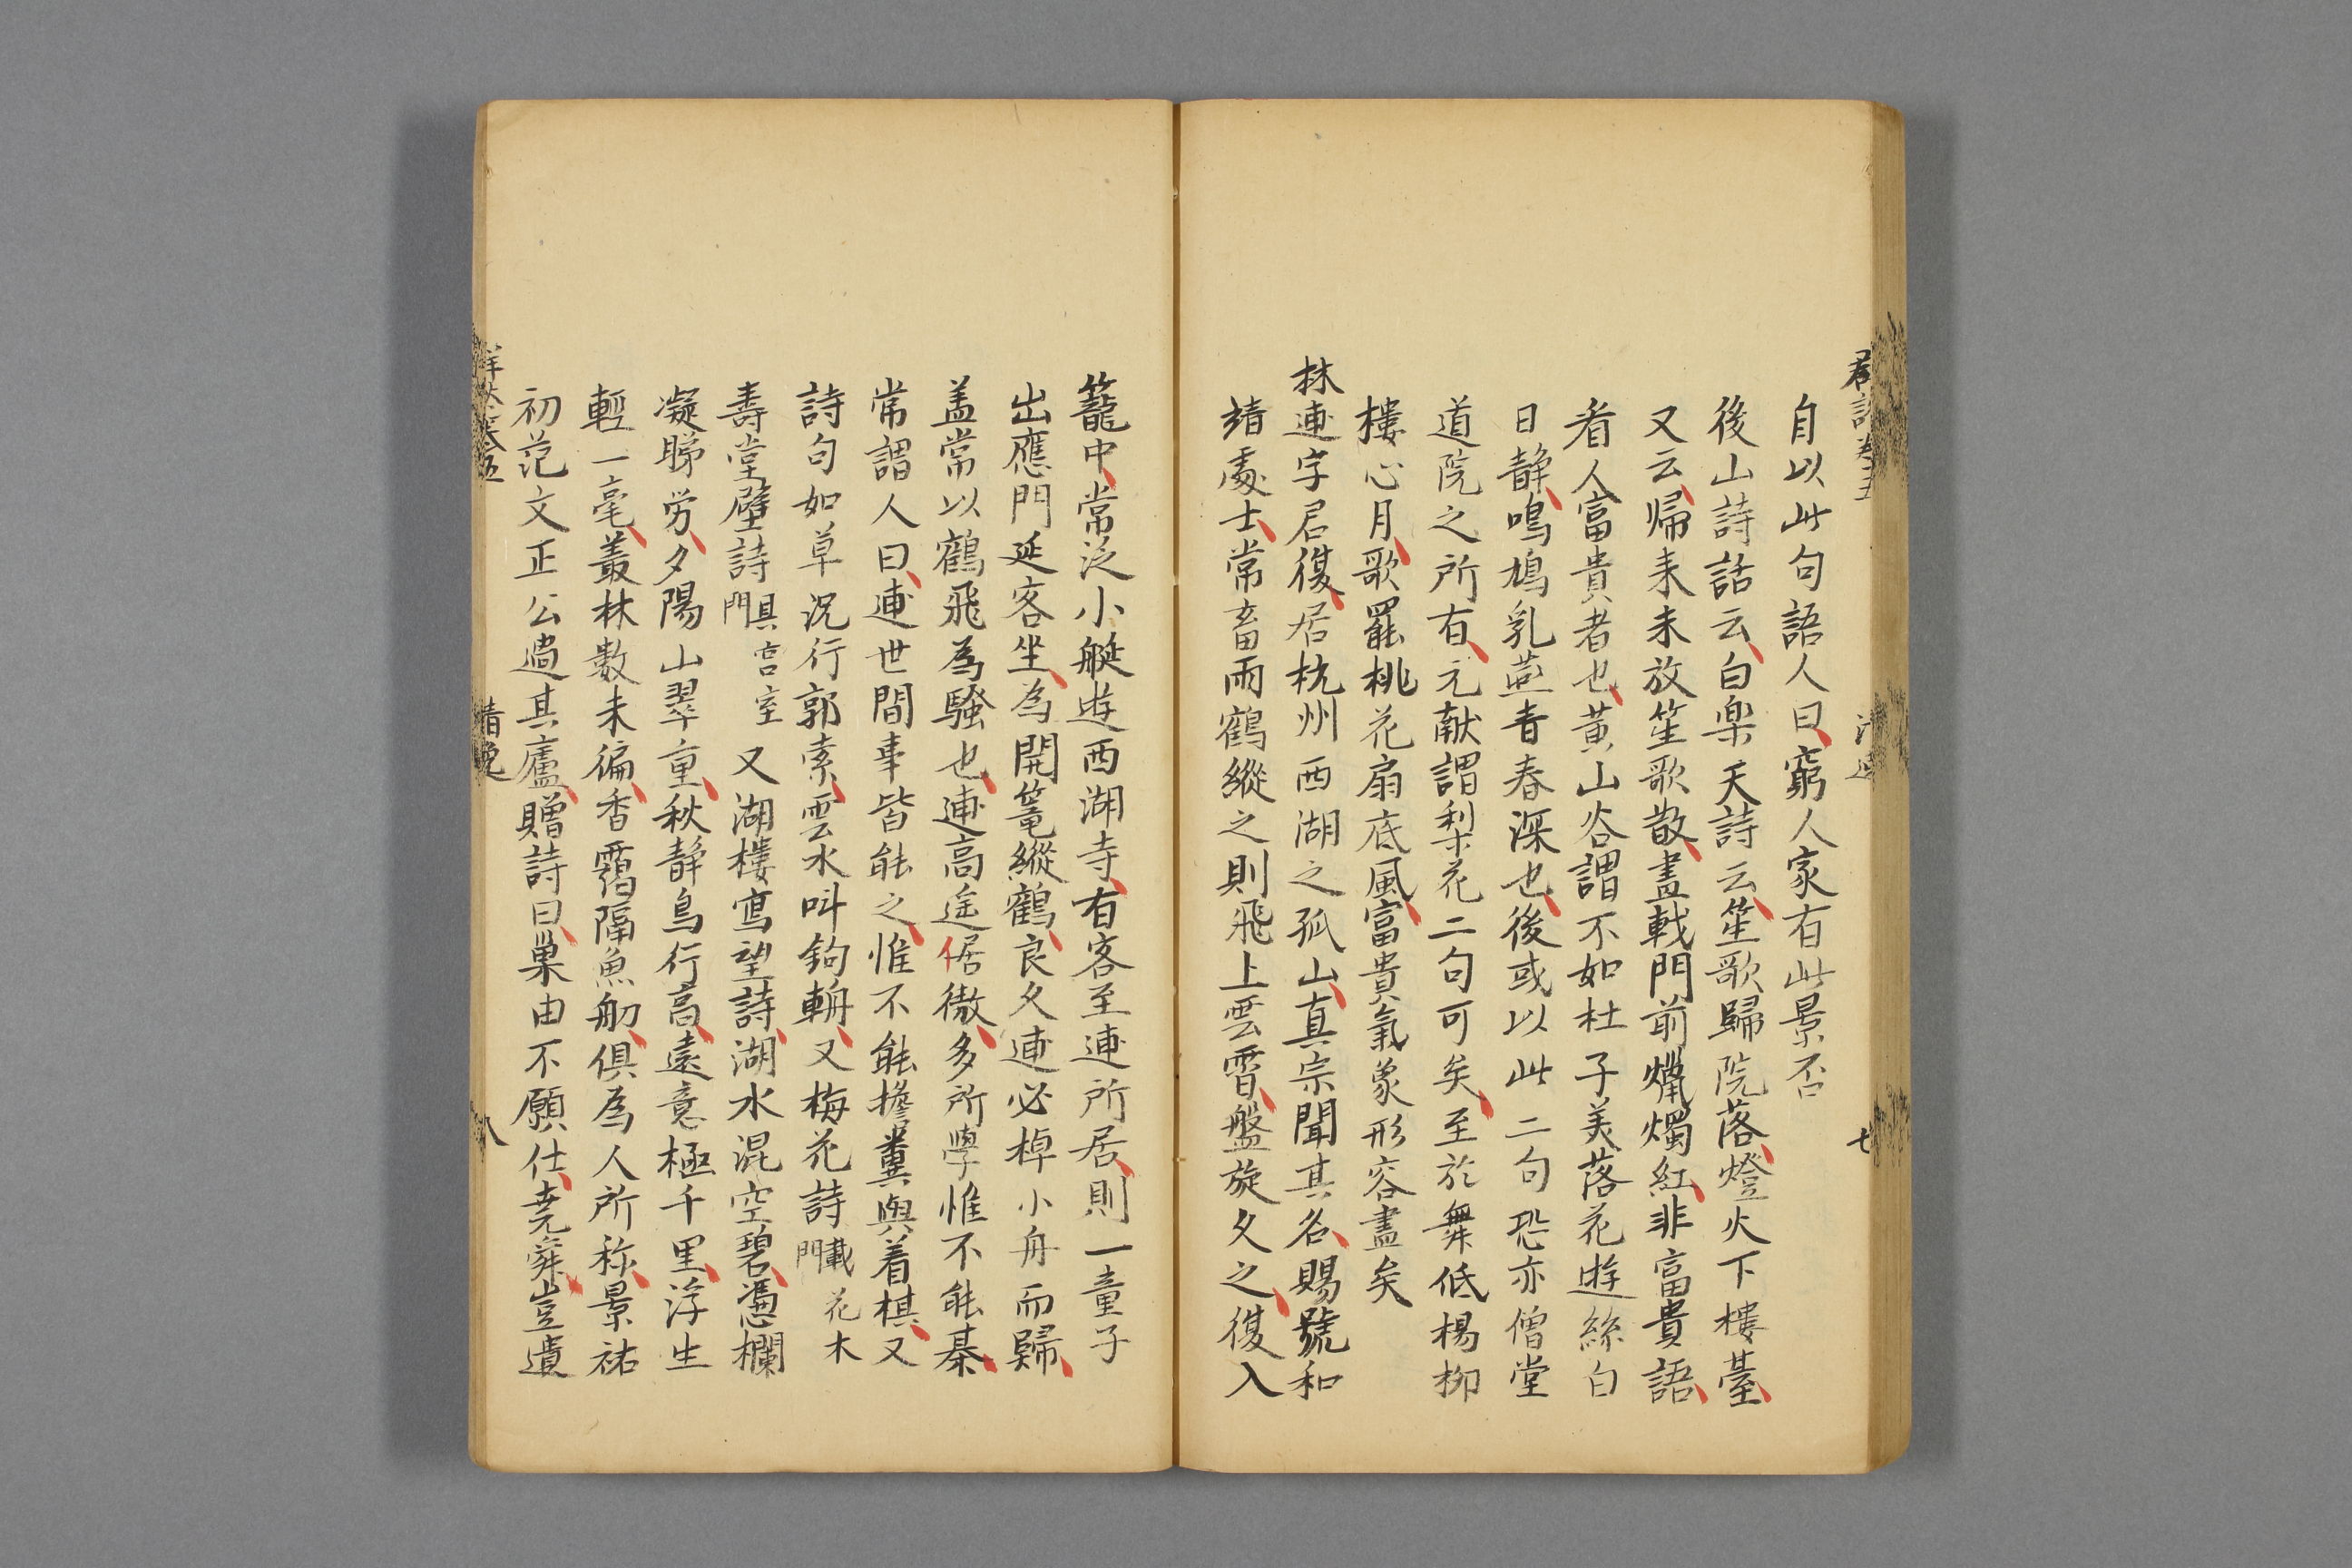 自以此句語人曰窮人家有此景否
後山詩話云白楽天詩云笙歌歸院落燈火下樓臺
又云帰来未放笙歌散畫戟門前爥燭紅非富貴語
看人富貴者也黄山谷謂不如杜子美落花遊絲白
日静鳴鳩乳燕青春深也後或以此二句恐亦僧堂
道院之所有元献謂梨花二句可矣至於舞低楊柳
樓心月歌罷桃花扇底風富貴氣象形容盡矣
林逋字君復居杭州西湖之孤山真宗聞其名賜號和
靖處士常畜兩鶴縱之則飛上雲霄盤旋久之復入
籠中常泛小艇遊西湖寺有客至逋所居則一童子
出應門延客坐為開篭縱鶴良久逋必棹小舟而歸
盖常以鶴飛為騐也逋高逸倨傲多所學惟不能棊
常謂人曰逋世間事皆能之惟不能擔糞與着棋又
詩句如草泥行郭索雲水叫鉤輈又梅花詩載花木門
壽堂壁詩具宫室門又湖樓寫望詩湖水混空碧憑欄
凝睇労夕陽山翠重秋静鳥行高遠意極千里浮生
輕一毫叢林數未徧香靄隔魚舠俱為人所称景祐
初范文正公過其廬贈詩曰巢由不願仕尭舜豈遺
卷五
七
八